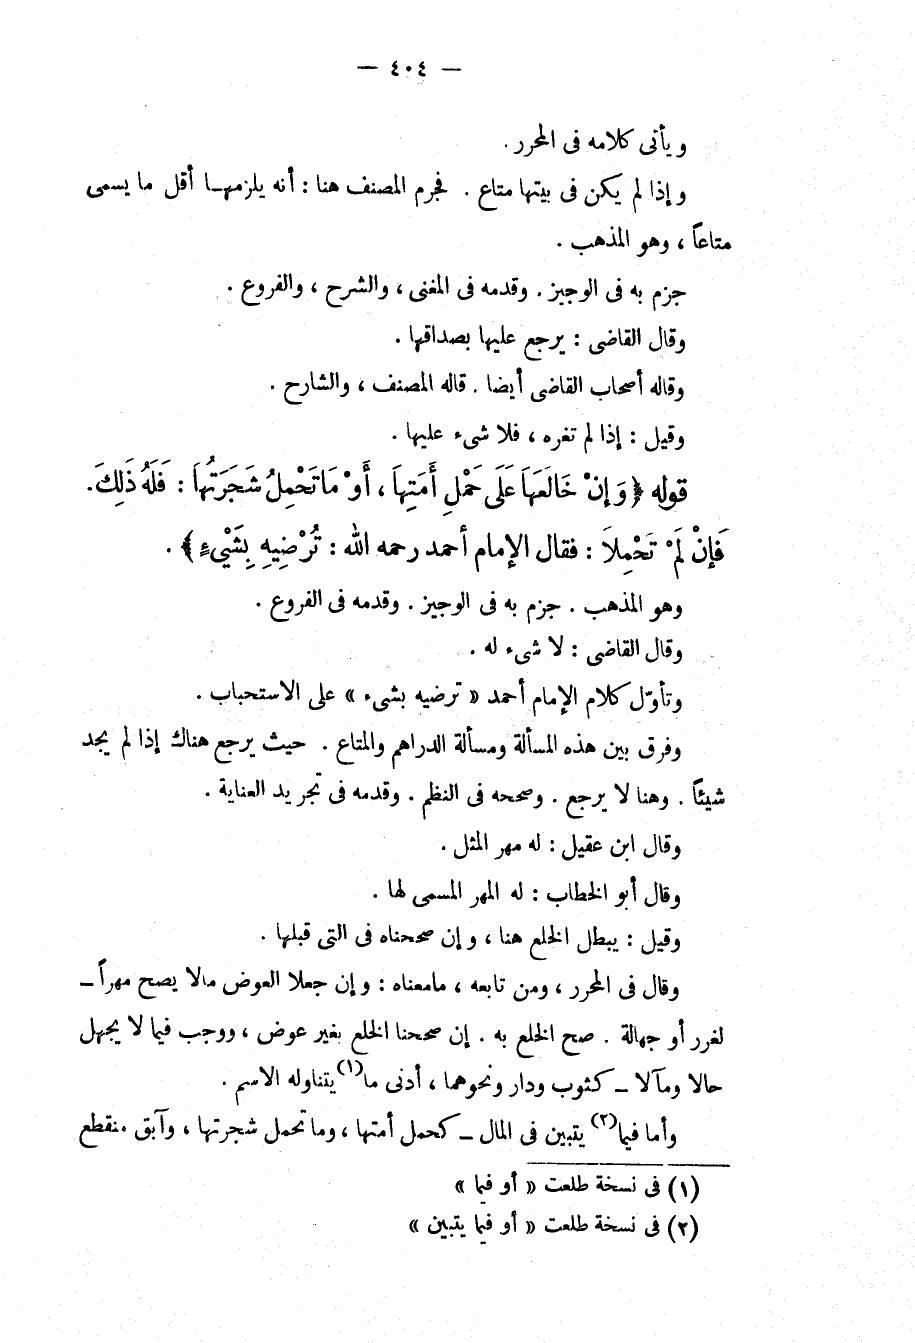 — ٤٠٤ —
ويأتى كلامه فى المحرر .
وإذا لم يكن فى بيتها متاع . فجرم المصنف هنا : أنه يلزمهـا أقل ما يسمى
متاعاً ، وهو المذهب .
جزم به فى الوجيز . وقدمه فى المغنى ، والشرح ، والفروع .
وقال القاضى : يرجع عليها بصداقها .
وقاله أصحاب القاضى أيضا . قاله المصنف ، والشارح .
وقيل : إذا لم تغره ، فلا شىء عليها .
قوله ﴿ وَإِنْ خَالَعَهَا عَلَى حَمْلِ أَمَتِهَا ، أَوْ مَا تَحْمِلُ شَجَرَتُهَا : فَلَهُ ذَلِكَ .
فَإِنْ لَمْ تَحْمِلَا : فقال الإمام أحمد رحمه الله : تُرْضِيهِ بِشَيْءٍ ﴾ .
وهو المذهب . جزم به فى الوجيز . وقدمه فى الفروع .
وقال القاضى : لا شىء له .
وتأوّل كلام الإمام أحمد « ترضيه بشىء » على الاستحباب .
وفرق بين هذه المسألة ومسألة الدراهم والمتاع . حيث يرجع هناك إذا لم يجد
شيئاً . وهنا لا يرجع . وصححه فى النظم . وقدمه فى تجريد العناية .
وقال ابن عقيل : له مهر المثل .
وقال أبو الخطاب : له المهر المسمى لها .
وقيل : يبطل الخلع هنا ، وإن صححناه فى التى قبلها .
وقال فى المحرر ، ومن تابعه ، مامعناه : وإن جعلا العوض مالا يصح مهراً ــ
لغرر أو جهالة . صح الخلع به . إن صححنا الخلع بغير عوض ، ووجب فيما لا يجهل
حالا ومآلا ــ كثوب ودار ونحوهما ، أدنى ما(١) يتناوله الاسم .
وأما فيما(٢) يتبين فى المال ــ كحمل أمتها ، وما تحمل شجرتها ، وآبق منقطع
(١) فى نسخة طلعت « أو فيما »
(٢) فى نسخة طلعت « أو فيما يتبين »